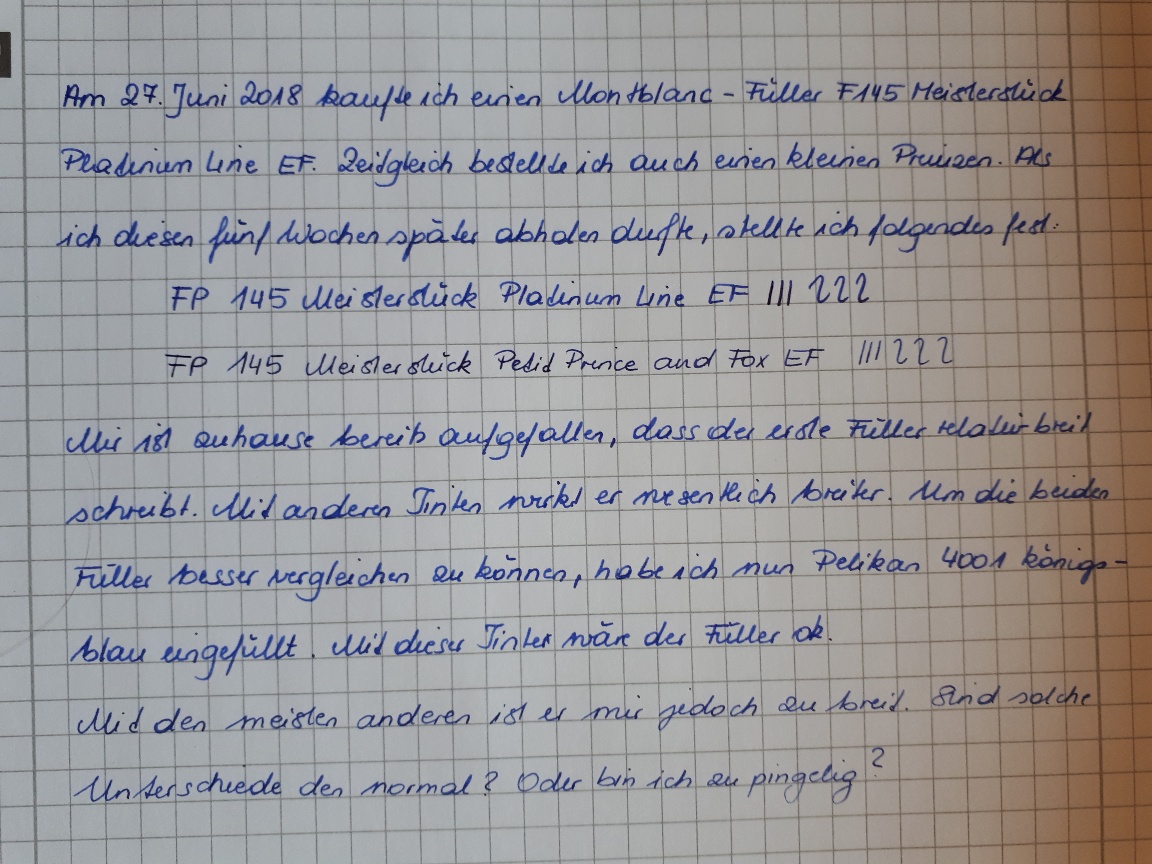 Am 27. Juni 2018 kaufte ich einen Montblanc - Füller F145 Meisterstück
Platinum Line EF. Zeitgleich bestellte ich auch einen kleinen Prinzen. Als
ich diesen fünf Wochen später abholen dufte, stellte ich folgendes fest:
FP 145 Meisterstück Platinum Line EF III 222
FP 145 Meisterstück Petit Prince and Fox EF III 222
Mir ist zuhause bereits aufgefallen, dass der erste Füller relativ breit
schreibt. Mit anderen Tinten wirkt er wesentlich breiter. Um die beiden
Füller besser vergleichen zu können, habe ich nun Pelikan 4001 königs-
blau eingefüllt. Mit dieser Tinten wäre der Füller ok.
Mit den meisten anderen ist er mir jedoch zu breit. Sind solche
Unterschiede den normal? Oder bin ich zu pingelig?